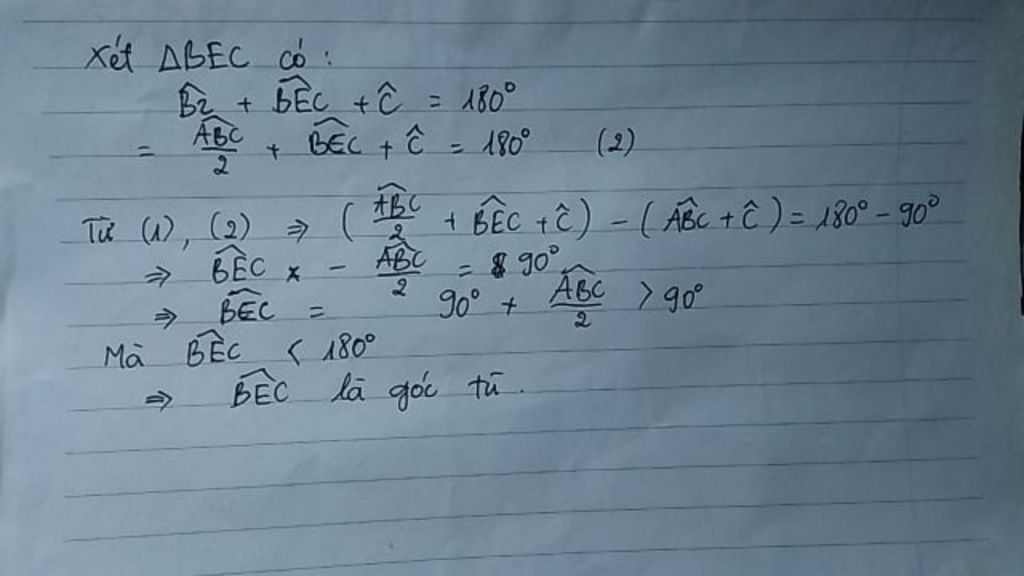 Xét ΔBEC có :
B̂2 + BÊC + Ĉ = 180°
= ABĈ/2 + BÊC + Ĉ = 180° (2)
Từ (1), (2) ⇒ (AB̂C/2 + BÊC + Ĉ) - (AB̂C + Ĉ) = 180° - 90°
⇒ BÊC - AB̂C/2 = 90°
⇒ BÊC = 90° + AB̂C/2 > 90°
Mà BÊC < 180°
⇒ BÊC là góc tù.